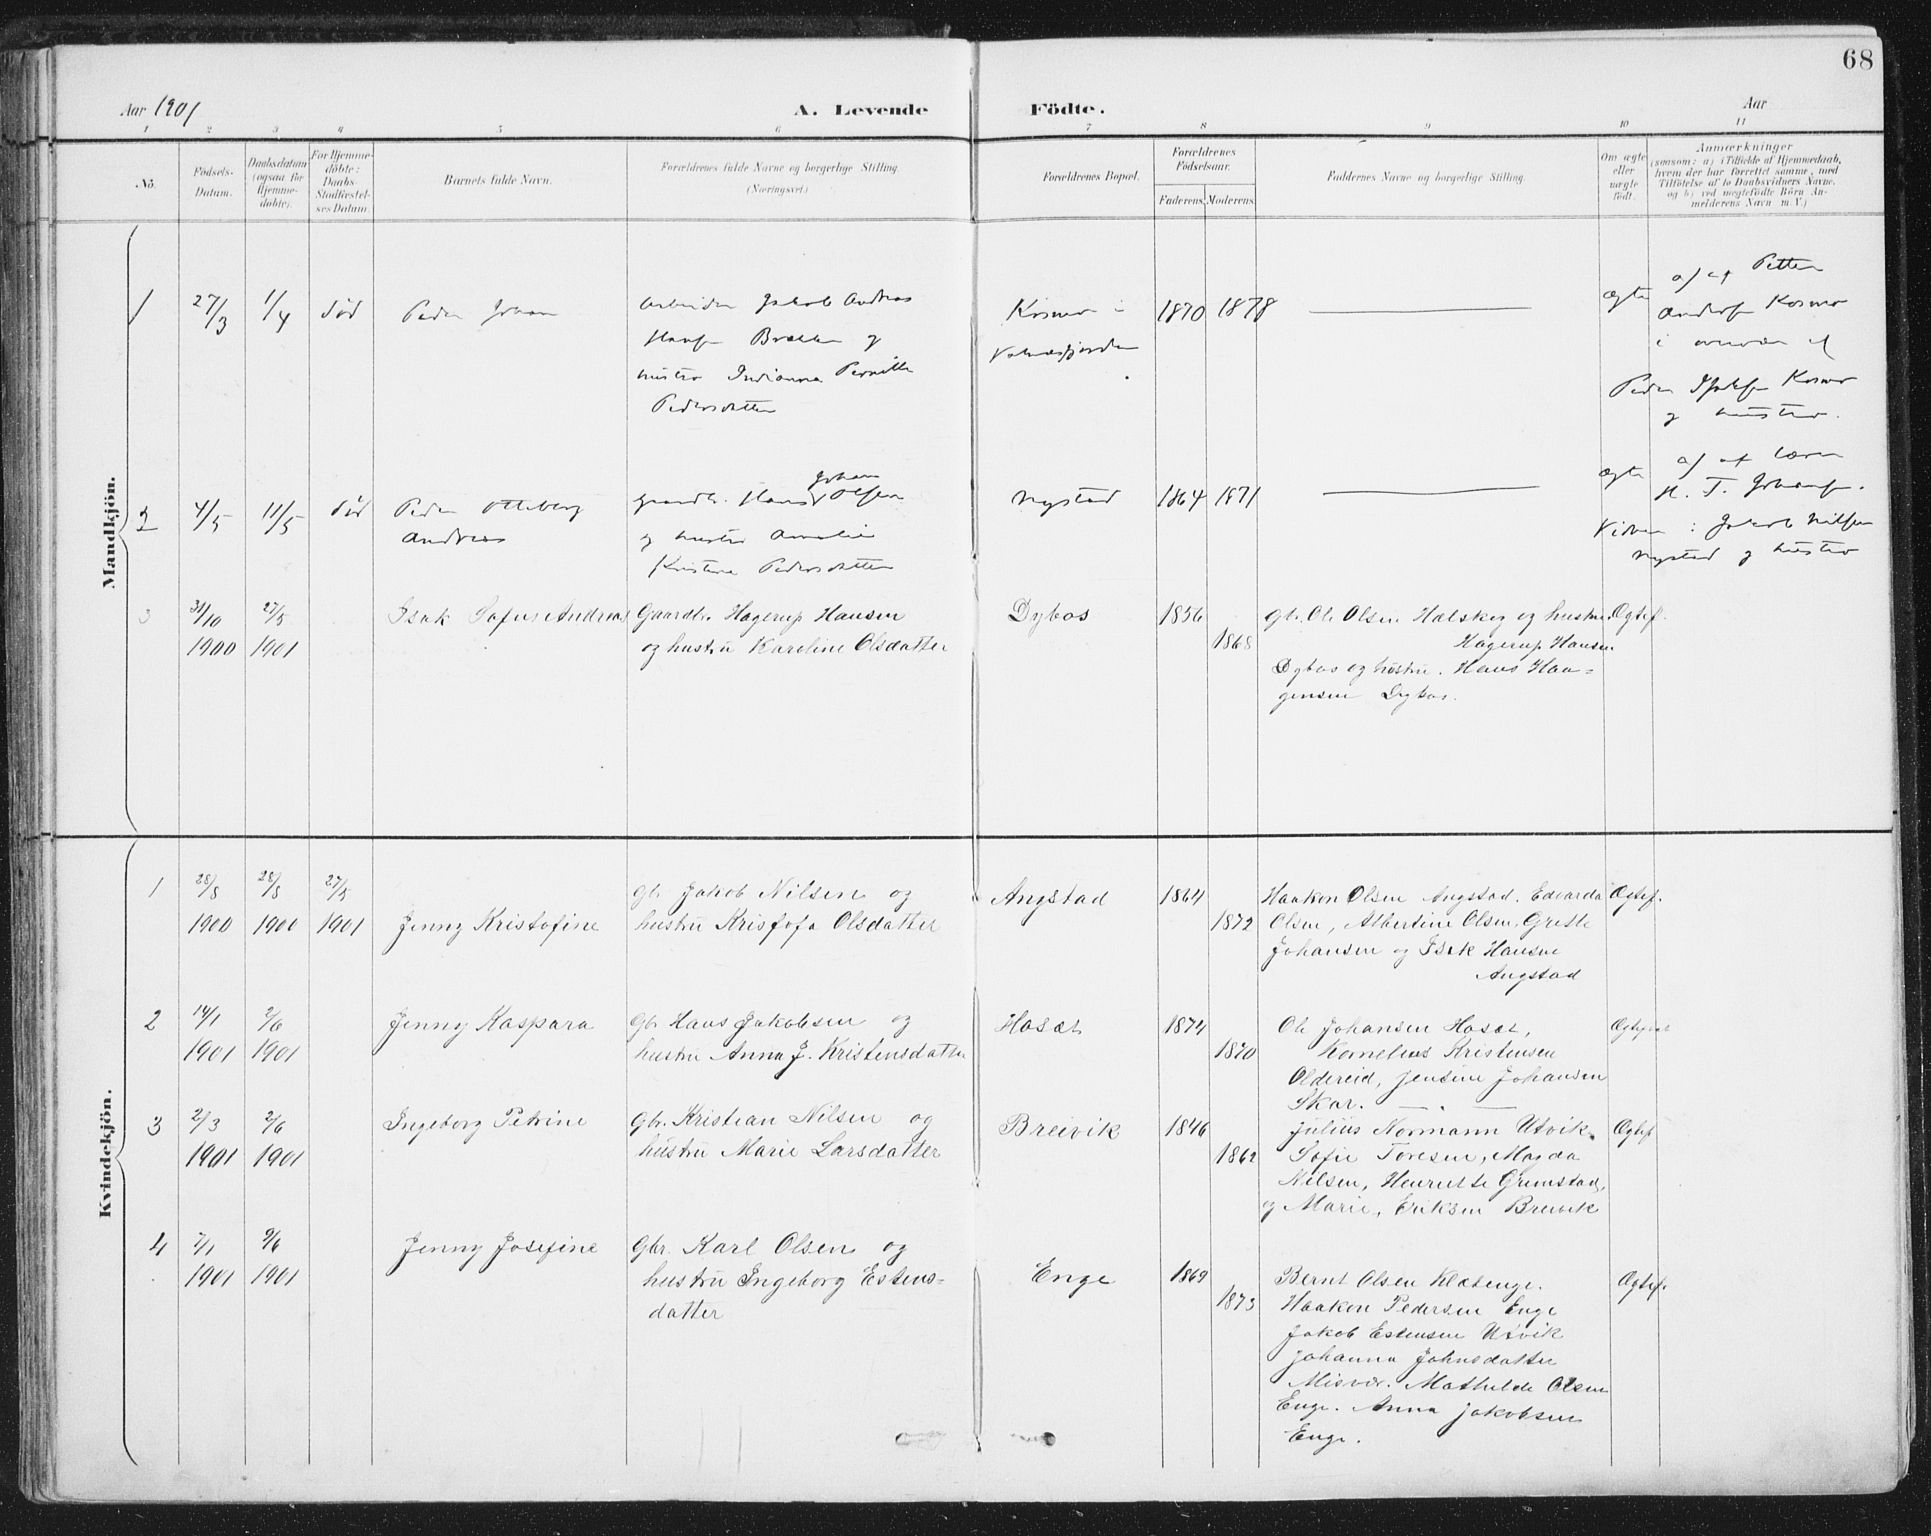 68
Aar 1901
A. Levende Födte.
Aar
1 2 3 4 5 6 7 8 9 10 11
No.
Födsels-
Datum.
Daabsdatum
(ogsaa for
Hjemme-
döbte).
For Hjemme-
döbte:
Daabs-
Stadfæstel-
ses Datum.
Barnets fulde Navn.
Forældrenes fulde Navne og borgerlige Stilling.
(Næringsvei.)
Forældrenes Bopæl.
Forældrenes
Födselsaar.
Faderens. Moderens.
Faddernes Navne og borgerlige Stilling.
Om ægte
eller
uægte
födt.
Anmærkninger
(saasom: a) i Tilfælde af Hjemmedaab,
hvem der har forrettet samme, med
Tilföielse af to Daabsvidners Navne.
og b) ved uægtefödte Börn An-
melderens Navn m. V.)
Mandkjön.
1 27/3 1/4 död Peder Johan
Arbeider Jakob Andreas
Hansen og
hustru Indianna Pernille
Pedersdatter
Kosmo i
Valnæsfjorden
1870 1878
ægte
a) af Petter
Andersen Kosmo
i overvær af
Peder Kosmo
og hustru.
2 4/5 11/5 död Peder Otteberg
Andreas
Gaardbr. Hans Johan Olsen
og hustru Amalie
Kristine Pedersdatter
Nystad
1864 1871
ægte
a) af Lærer
H. T. Johansen.
Vidner: Jakob Nilsen
Nystad og hustru
3 31/10 27/5 Isak Sofus Andreas
1900 1901
Gaardbr. Hagerup Hansen
og hustru Karoline Olsdatter
Dybos
1856
1868
gbr. Ole Olsen Hælskog og hustru Ægtef.
Hagerup Hansen
Dybos og hustru. Hans Haa-
gensen Dybos.
Kvindekjön.
1 28/8 28/8 27/5
1900 1900 1901 Jenny Kristofine
gbr. Jakob Nilsen og
hustru Kristofa Olsdatter
Angstad
1864
1872
Haakon Olsen Angstad. Edvarda Ægtef.
Olsen, Albertine Olsen, Grethe
Johansen og Isak Hansen
Angstad
2 14/1 2/6 Jenny Kaspara
1901 1901
Gbr. Hans Jakobsen og
hustru Anna J. Kristensdatter
Hosæt
1874
1870
Ole Johansen Hosæt,
Kornelius Kristensen
Oldereid, Jensine Johansen
Skar.
3 2/3 2/6 Ingeborg Petrine
1901 1901
Gbr. Kristian Nilsen og
hustru Marie Larsdatter
Breivik
1846
1862
Julius Normann Utvik. Ægtef
Sofie Toresen, Magda
Nilsen, Henriette Grimstad,
og Marie Eriksen Breivik
4 7/1 9/6 Jenny Josefine
1901 1901
Gbr. Karl Olsen og
hustru Ingeborg Estens-
datter
Enge
1869
1873
Bernt Olsen Klætenge. Ægtef.
Haakon Pedersen Enge
Jakob Estensen Utvik
Johanna Johnsdatter
Misvær. Mathilde Olsen
Enge. Anna Jakobsen
Enge.